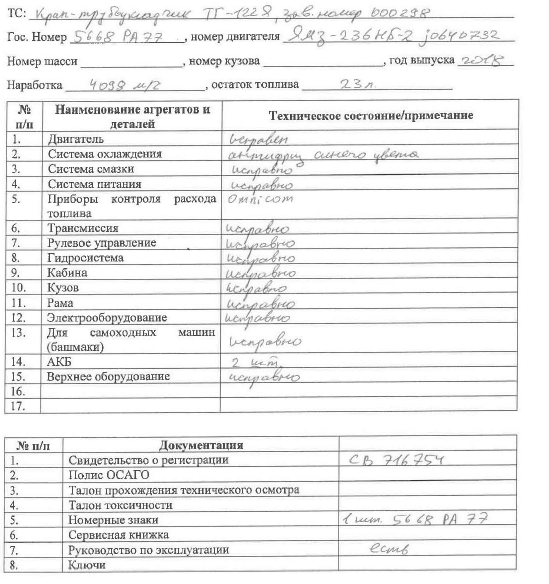 ТС: Кран-трубоукладчик ТГ-122Я, зав. номер 000298
Гос. Номер 5668 РА 77, номер двигателя ЯМЗ-236НБ-2 j0640732
Номер шасси, номер кузова, год выпуска 2018
Наработка 4098 м/ч, остаток топлива 23 л.
№ п/п Наименование агрегатов и деталей Техническое состояние/примечание
1. Двигатель исправен
2. Система охлаждения антифриз синего цвета
3. Система смазки исправно
4. Система питания исправно
5. Приборы контроля расхода топлива Omnicom
6. Трансмиссия исправно
7. Рулевое управление исправно
8. Гидросистема исправно
9. Кабина исправно
10. Кузов исправно
11. Рама исправно
12. Электрооборудование исправно
13. Для самоходных машин (башмаки) исправно
14. АКБ 2 шт.
15. Верхнее оборудование исправно
16.
17.
№ п/п Документация
1. Свидетельство о регистрации СВ 716754
2. Полис ОСАГО
3. Талон прохождения технического осмотра
4. Талон токсичности
5. Номерные знаки 1 шт. 5668 РА 77
6. Сервисная книжка
7. Руководство по эксплуатации есть
8. Ключи